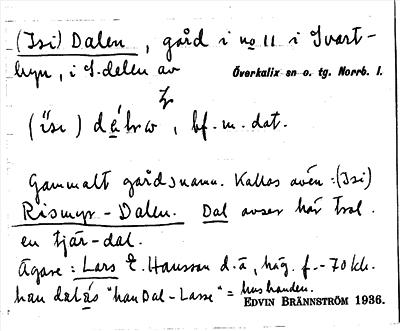 (Isi) Dalen, gård i no 11 i Svart-
byn, i S. delen av
Överkalix sn o. tg. Norrb. l.
bf. m. dat.
Gammalt gårdsnamn. Kallas även: (Isi)
Rismyr-Dalen. Dal avser här trol.
en tjär-dal.
Ägare: Lars E. Hansson d.ä, häg. f. -70 kh.
han "han Dal-Lasse" = husbonden.
EDVIN BRÄNNSTRÖM 1936.